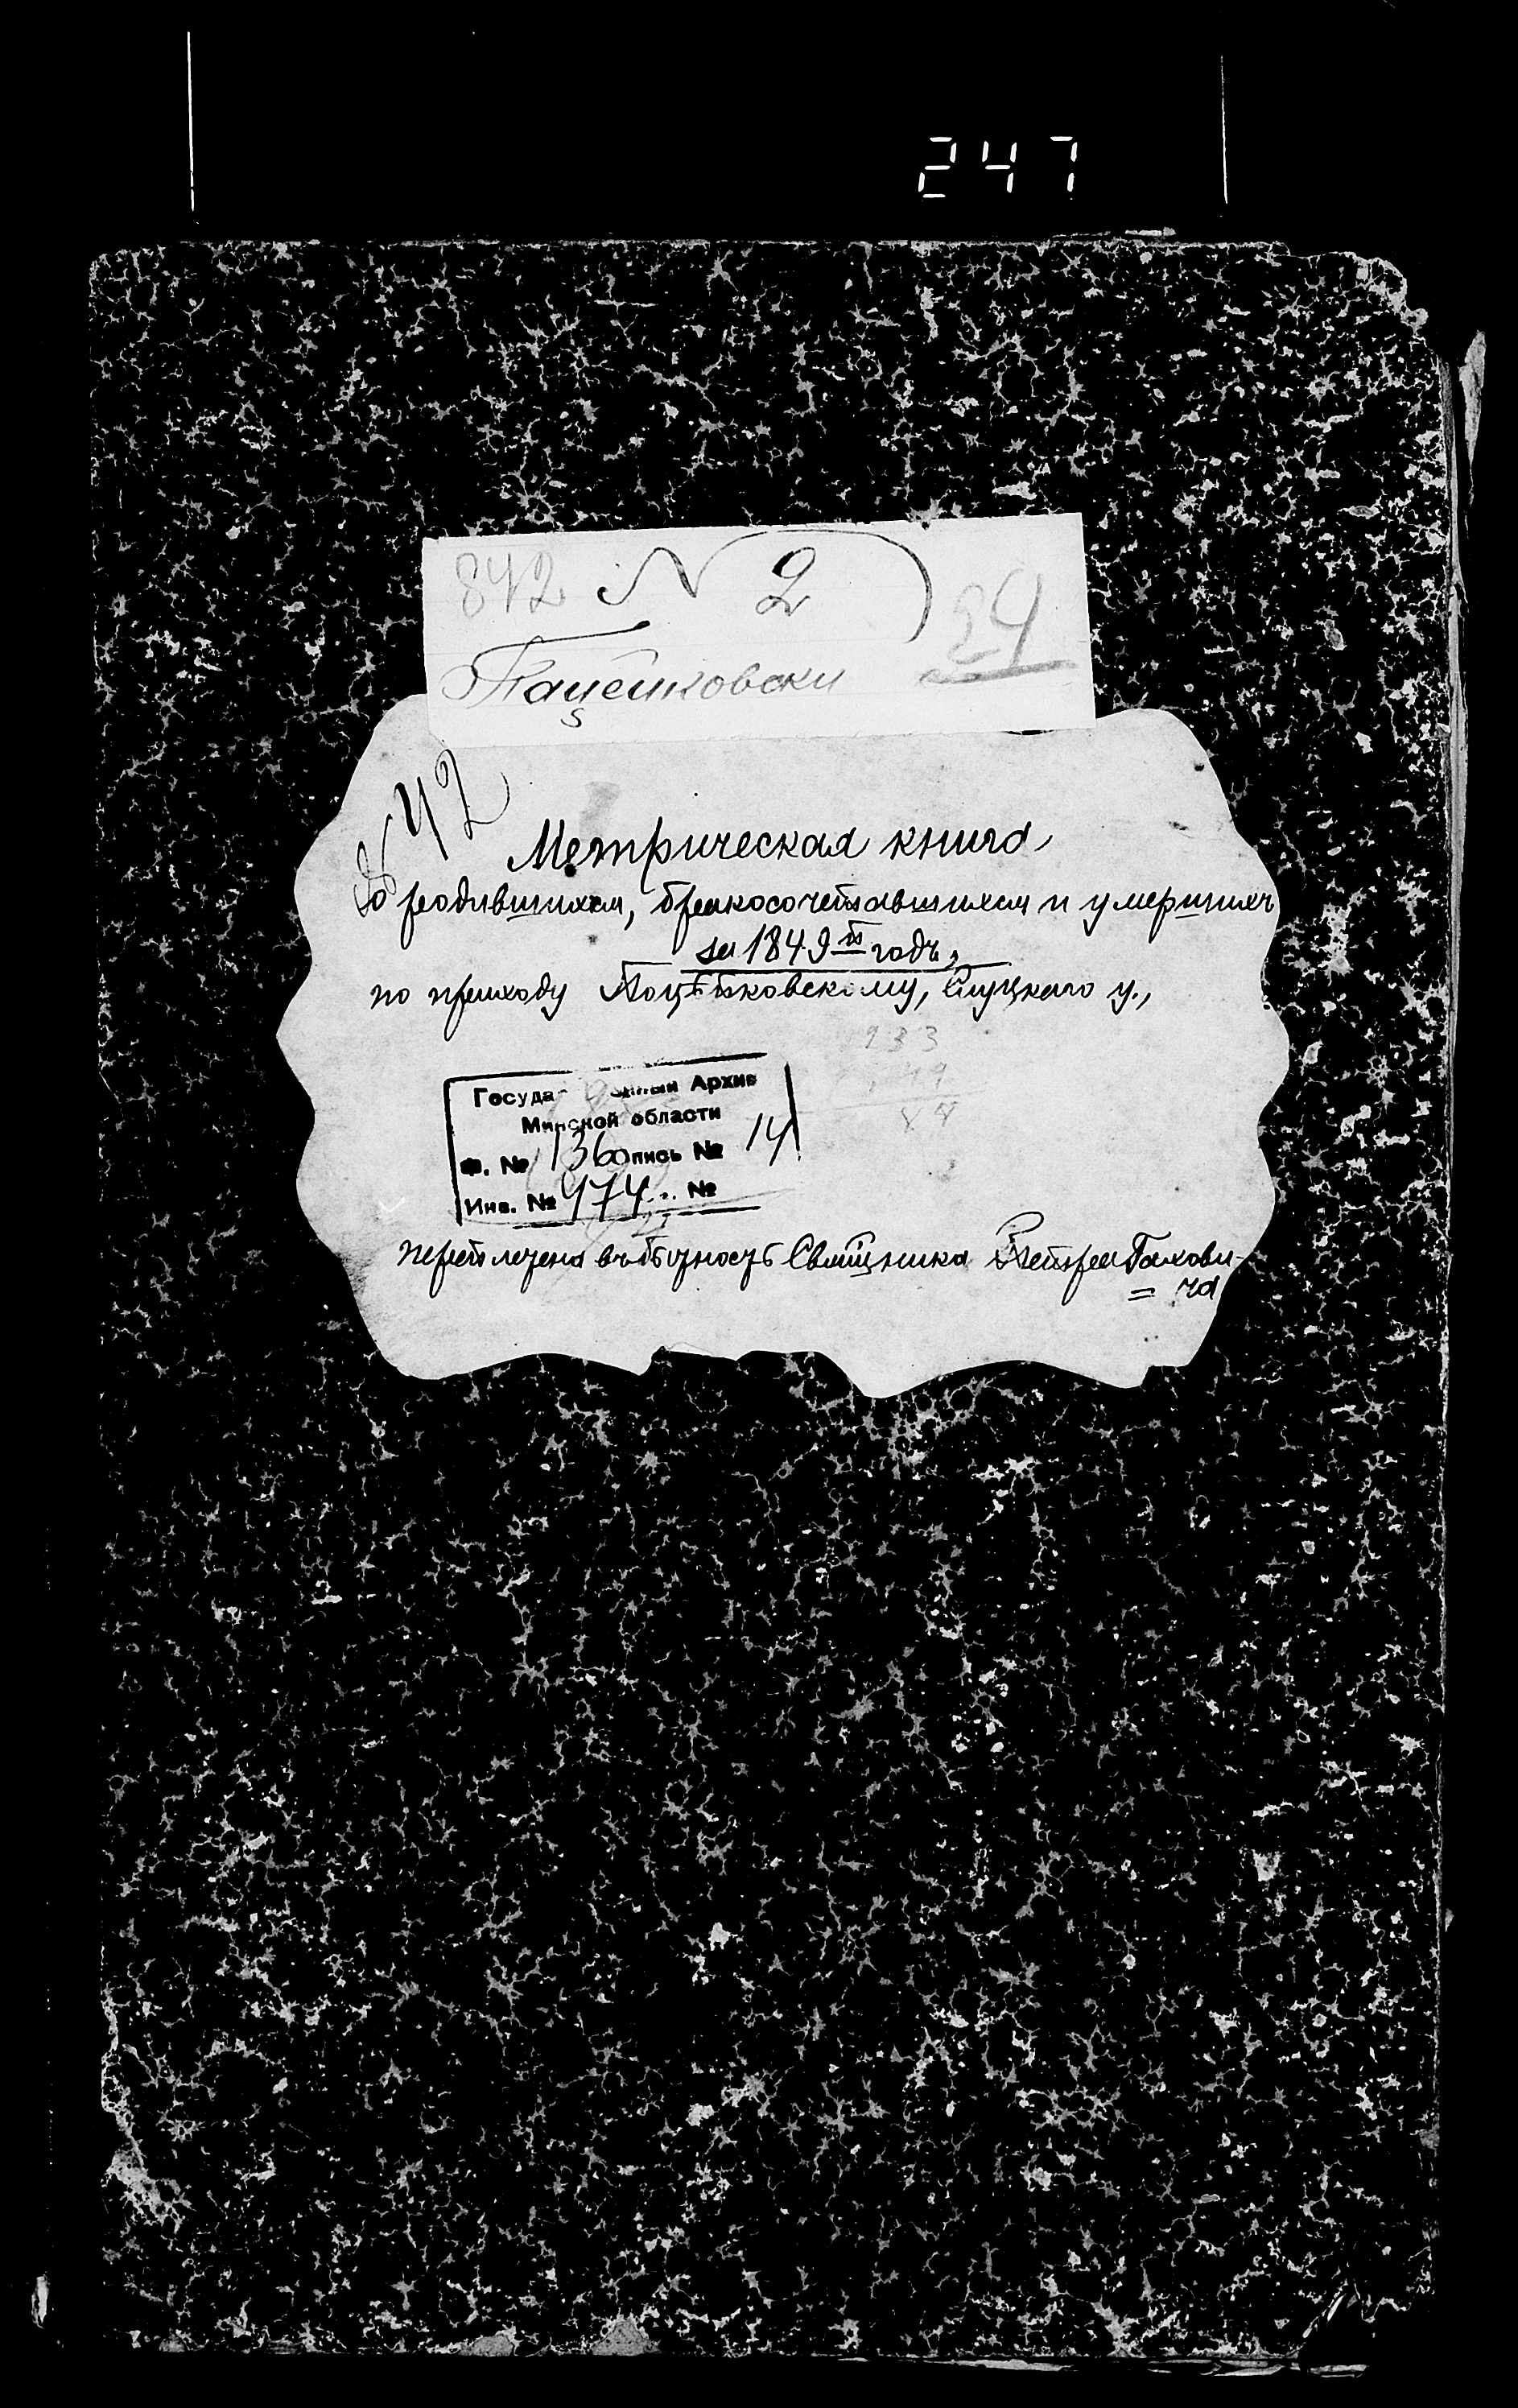 247
842 N 2
24
Пацейковски
N 42
Метрическая книга
о родившихся, бракосочетавшихся и умершихъ
за 1849-й годъ,
по приходу Поцѣйковскому, Слуцкаго у.,
133
49
84
Архив
Минской области
Ф. № 136 опись № 14
Инв. № 474 №
переплетена въ бытность Свящника Петра Гахови-
= ча